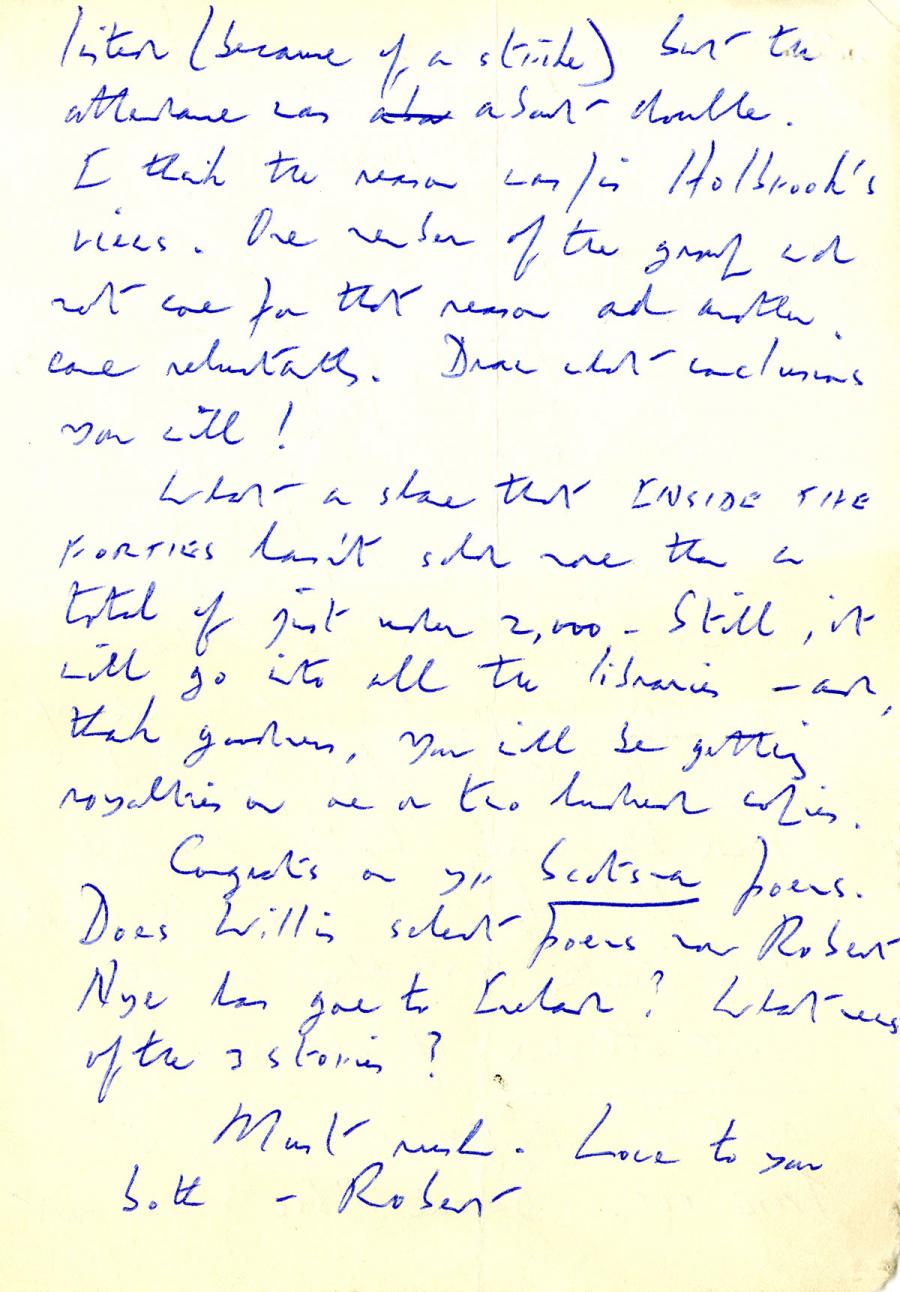 (because of a strike) but the
attendance was about double.
I think the reason was/is Holbrook's
views. One member of the group did
not come for that reason and another
came reluctantly. Draw what conclusions
you will!
What a shame that INSIDE THE
FORTIES hasn't sold more than a
total of just under 2,000 - Still, it
will go into all the libraries - and,
thank goodness, you will be getting
royalties on one or two hundred copies.
Congrats on yr Scotsman poems.
Does Willis select poems now Robert
Nye has gone to Ireland? What news
of the 3 stories?
Must rush. Love to you
both - Robert